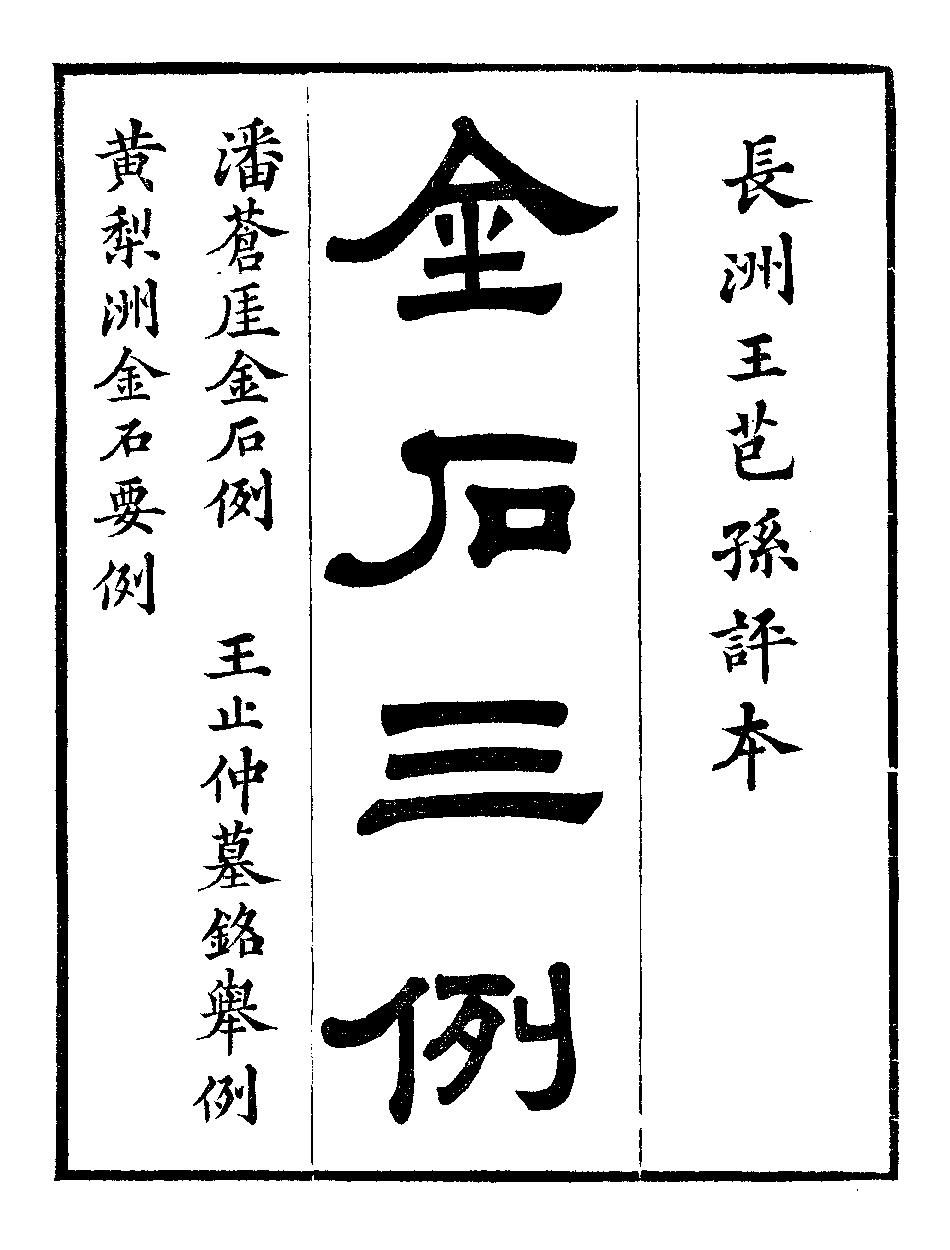 長洲王芑孫評本
金石三例
潘蒼厓金石例　王止仲墓銘舉例
黃梨洲金石要例